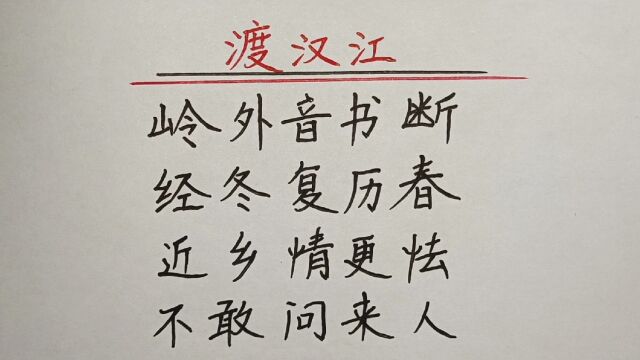 渡汉江
岭外音书断
经冬复历春
近乡情更怯
不敢问来人